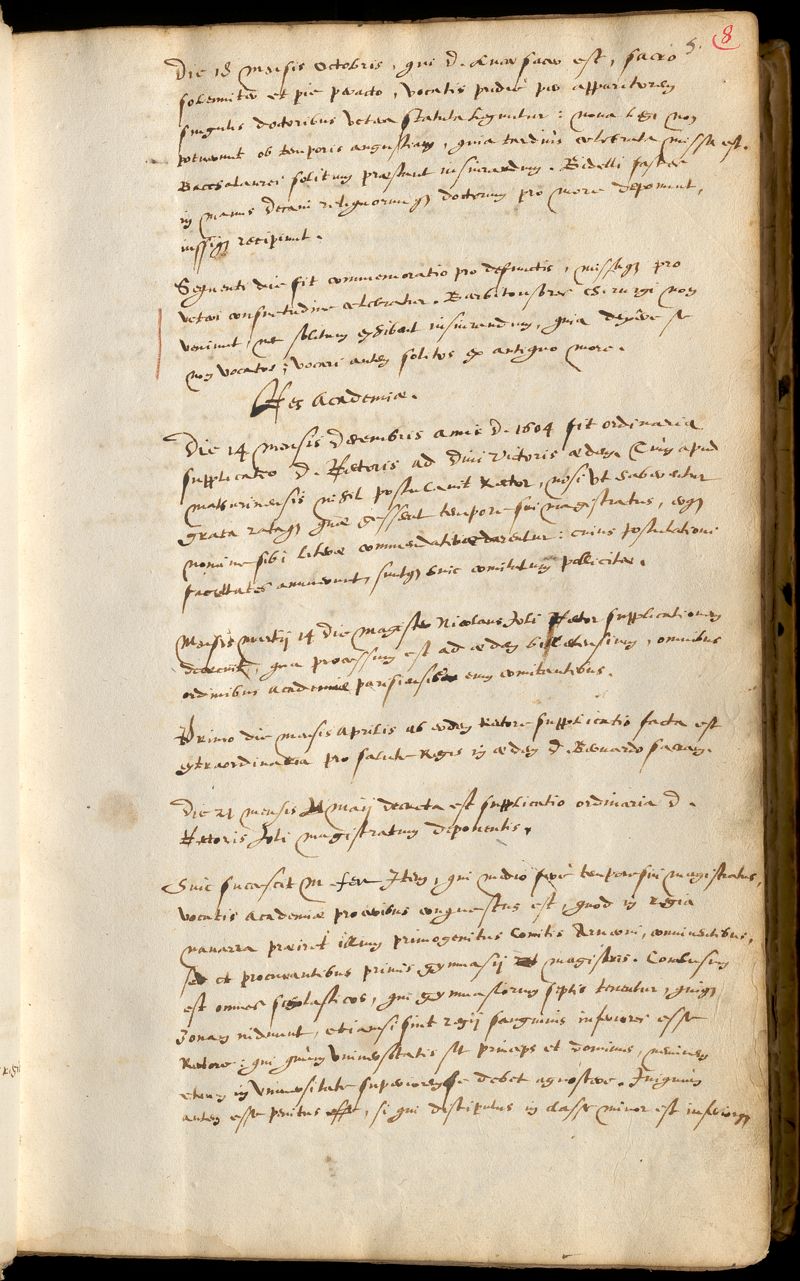 5. 8
Die 18 mensis Octobris, qui d. Lucae sacer est, sacro
solemniter et pie peracto, vocatis pridie per apparitorem
singulis doctoribus vetera statuta leguntur: nova legi non
potuerunt ob temporis angustiam, quia tardius celebrata missa est.
Baccalaurei solitum praestant iusiurandum. Bidelli fasces
in manus decani reliquorumq; doctorum pro more deponunt,
iussiq; recipiunt.
Sequenti die fit commemoratio pro defunctis, missaq; pro
veteri consuetudine celebratur. Barbitonsores chirurgi non
veniunt, nec solitum exhibent iusiurandum, quia dixere se
non vocatos; vocari autem solitos ex antiquo more.
Res Academiae.
Die 14 mensis decembris anni d. 1604 fit ordinaria
supplicatio d. Rectoris ad divi Victoris aedem. Cum apud
mathurinensis nihil postulavit Rector, nisi ut haberentur
grata rataq; quae gessent tempore sui magistratus, eoq;
nomine sibi literae commendatitiae darentur: cuius postulationi
facultates annuerunt, suntq; huic comitatum pollicitae.
Mensis martij 14 die magister Nicolaus Joli Rector supplicationem
decrevit, qua processum est ad aedem billetensium, omnibus
ordinibus academiae parisiensis eum comitantibus.
Primo die mensis Aprilis ab eodem Rectore supplicatio facta est
extraordinaria pro salute Regis in aedem d. Bernardo sacram.
Die 21 mensis maij decreta est supplicatio ordinaria d.
Rectoris Joli magistratum deponentis.
Huic succescit M. qui medio fere tempore sui magistratus,
vocatis Academiae proceribus conquestus est, quod in regia
navarra praeiret illum primogenitus Comitis conniventibus,
sed et procurantibus primis gymnasij magistris. Conclusum
est omnes scholasticos, qui gymnasiorum septis tenentur, quiq;
zonam induunt, etiamsi sint regij sanguinis inferiores esse
Rectore: qui quum universitatis sit princeps et dominus, neminem
etiam in universitate superiorem se debet agnoscere. Iniquum
autem esse penitus, si qui discipulus in classe minor est inferiorq;